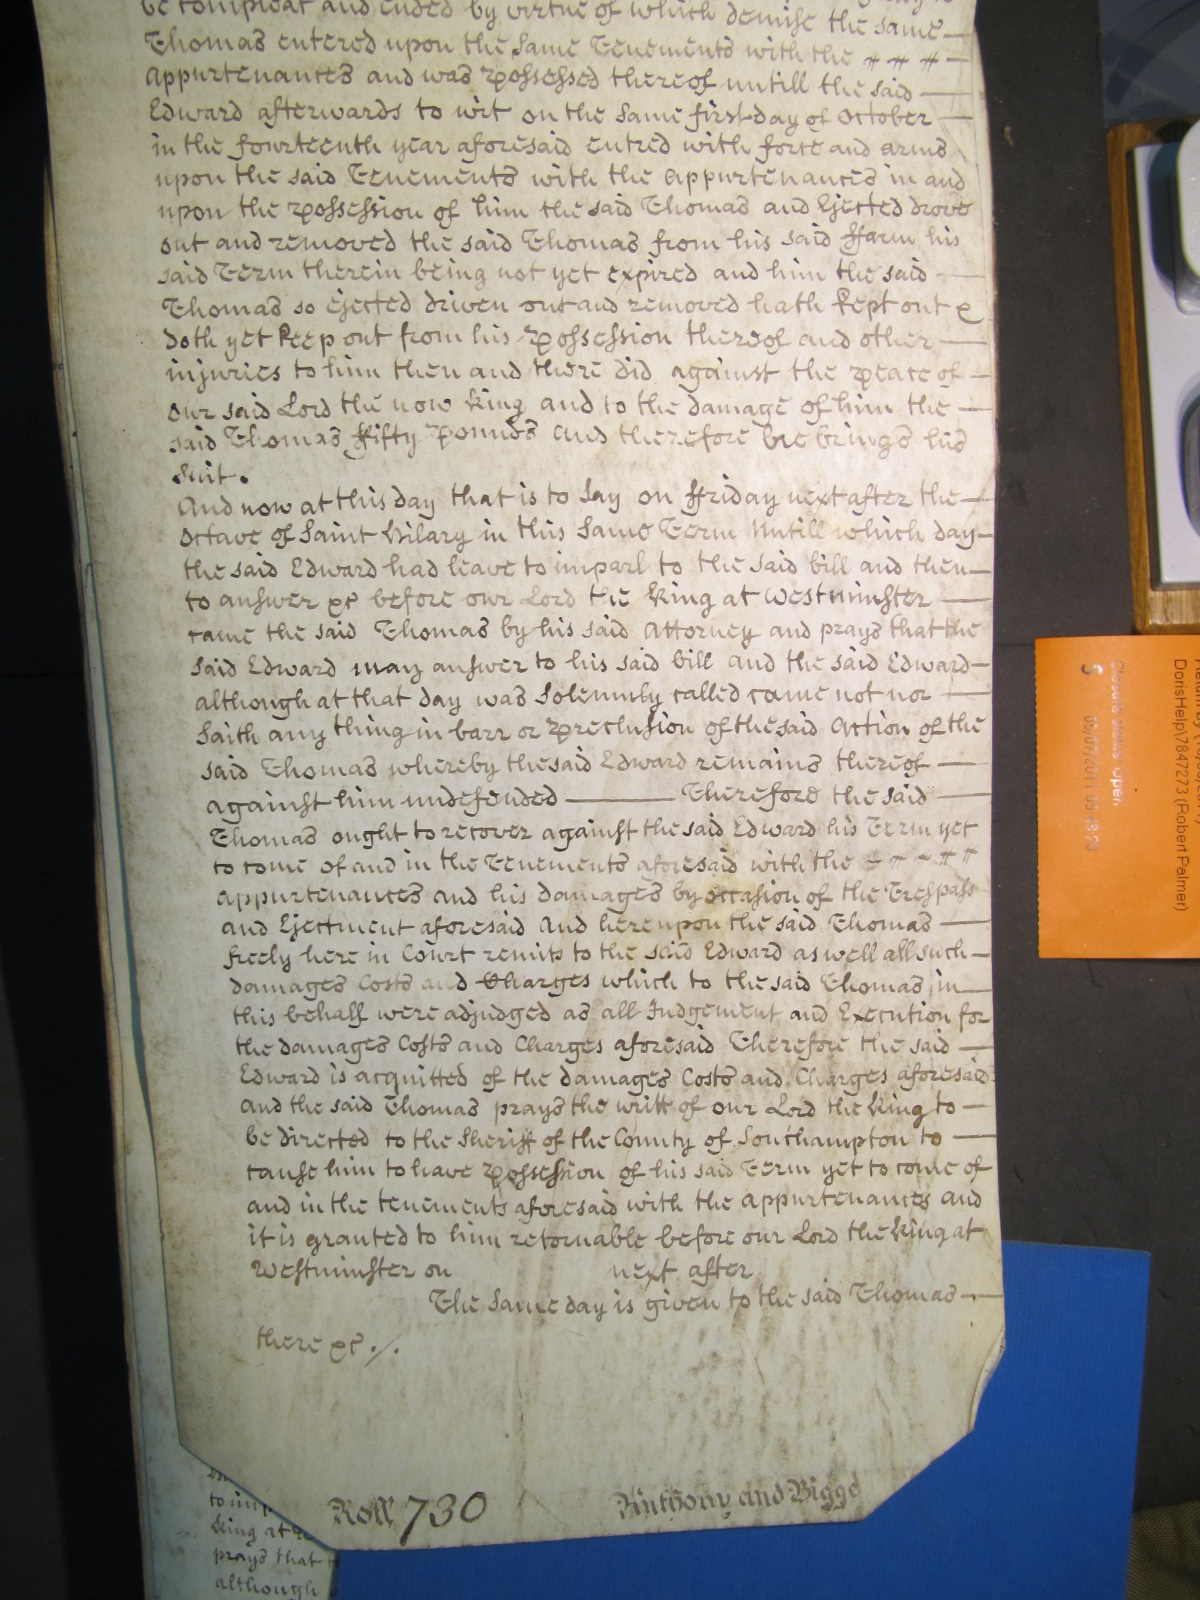 be compleat and ended by virtue of which demise the same
Thomas entered upon the same Tenements with the
Appurtenances and was Possessed thereof untill the said
Edward afterwards to wit on the same first day of October
in the fourteenth year aforesaid entred with force and arms
upon the said Tenements with the Appurtenances in and
upon the Possession of him the said Thomas and Ejected drove
out and removed the said Thomas from his said ffarm his
said Term therein being not yet expired and him the said
Thomas so ejected driven out and removed hath kept out &
doth yet keep out from his Possession thereof and other
injuries to him then and there did against the peace of
our said Lord the now King and to the damage of him the
said Thomas ffifty Pounds And therefore he brings his
Suit.
And now at this day that is to say on ffriday next after the
Octave of Saint Hilary in this same Term Untill which day
the said Edward had leave to imparl to the said bill and then
to answer &c before our Lord the King at Westminster
came the said Thomas by his said Attorney and prays that the
said Edward may answer to his said bill and the said Edward
although at that day was Solemnly called came not nor
saith any thing in barr or Preclusion of the said Action of the
said Thomas whereby the said Edward remains thereof
against him undefended Therefore the said
Thomas ought to recover against the said Edward his Term yet
to come of and in the Tenements aforesaid with the
appurtenances and his damages by occasion of the Trespass
and Ejectment aforesaid And hereupon the said Thomas
freely here in Court remits to the said Edward as well all such
damages Costs and Charges which to the said Thomas in
this behalf were adjudged as all Judgement and Execution for
the damages Costs and Charges aforesaid Therefore the said
Edward is acquitted of the damages Costs and Charges aforesaid
And the said Thomas prays the writt of our Lord the King to
be directed to the Sheriff of the County of Southampton to
cause him to have Possession of his said Term yet to come of
and in the tenements aforesaid with the appurtenances and
it is granted to him retornable before our Lord the King at
Westminster on next after
The same day is given to the said Thomas
there &c ./.
Roll 730
Anthony and Bigge
to imp
King at
prays that
although
DorisHelp\7847273 (Robert Palmer)
S